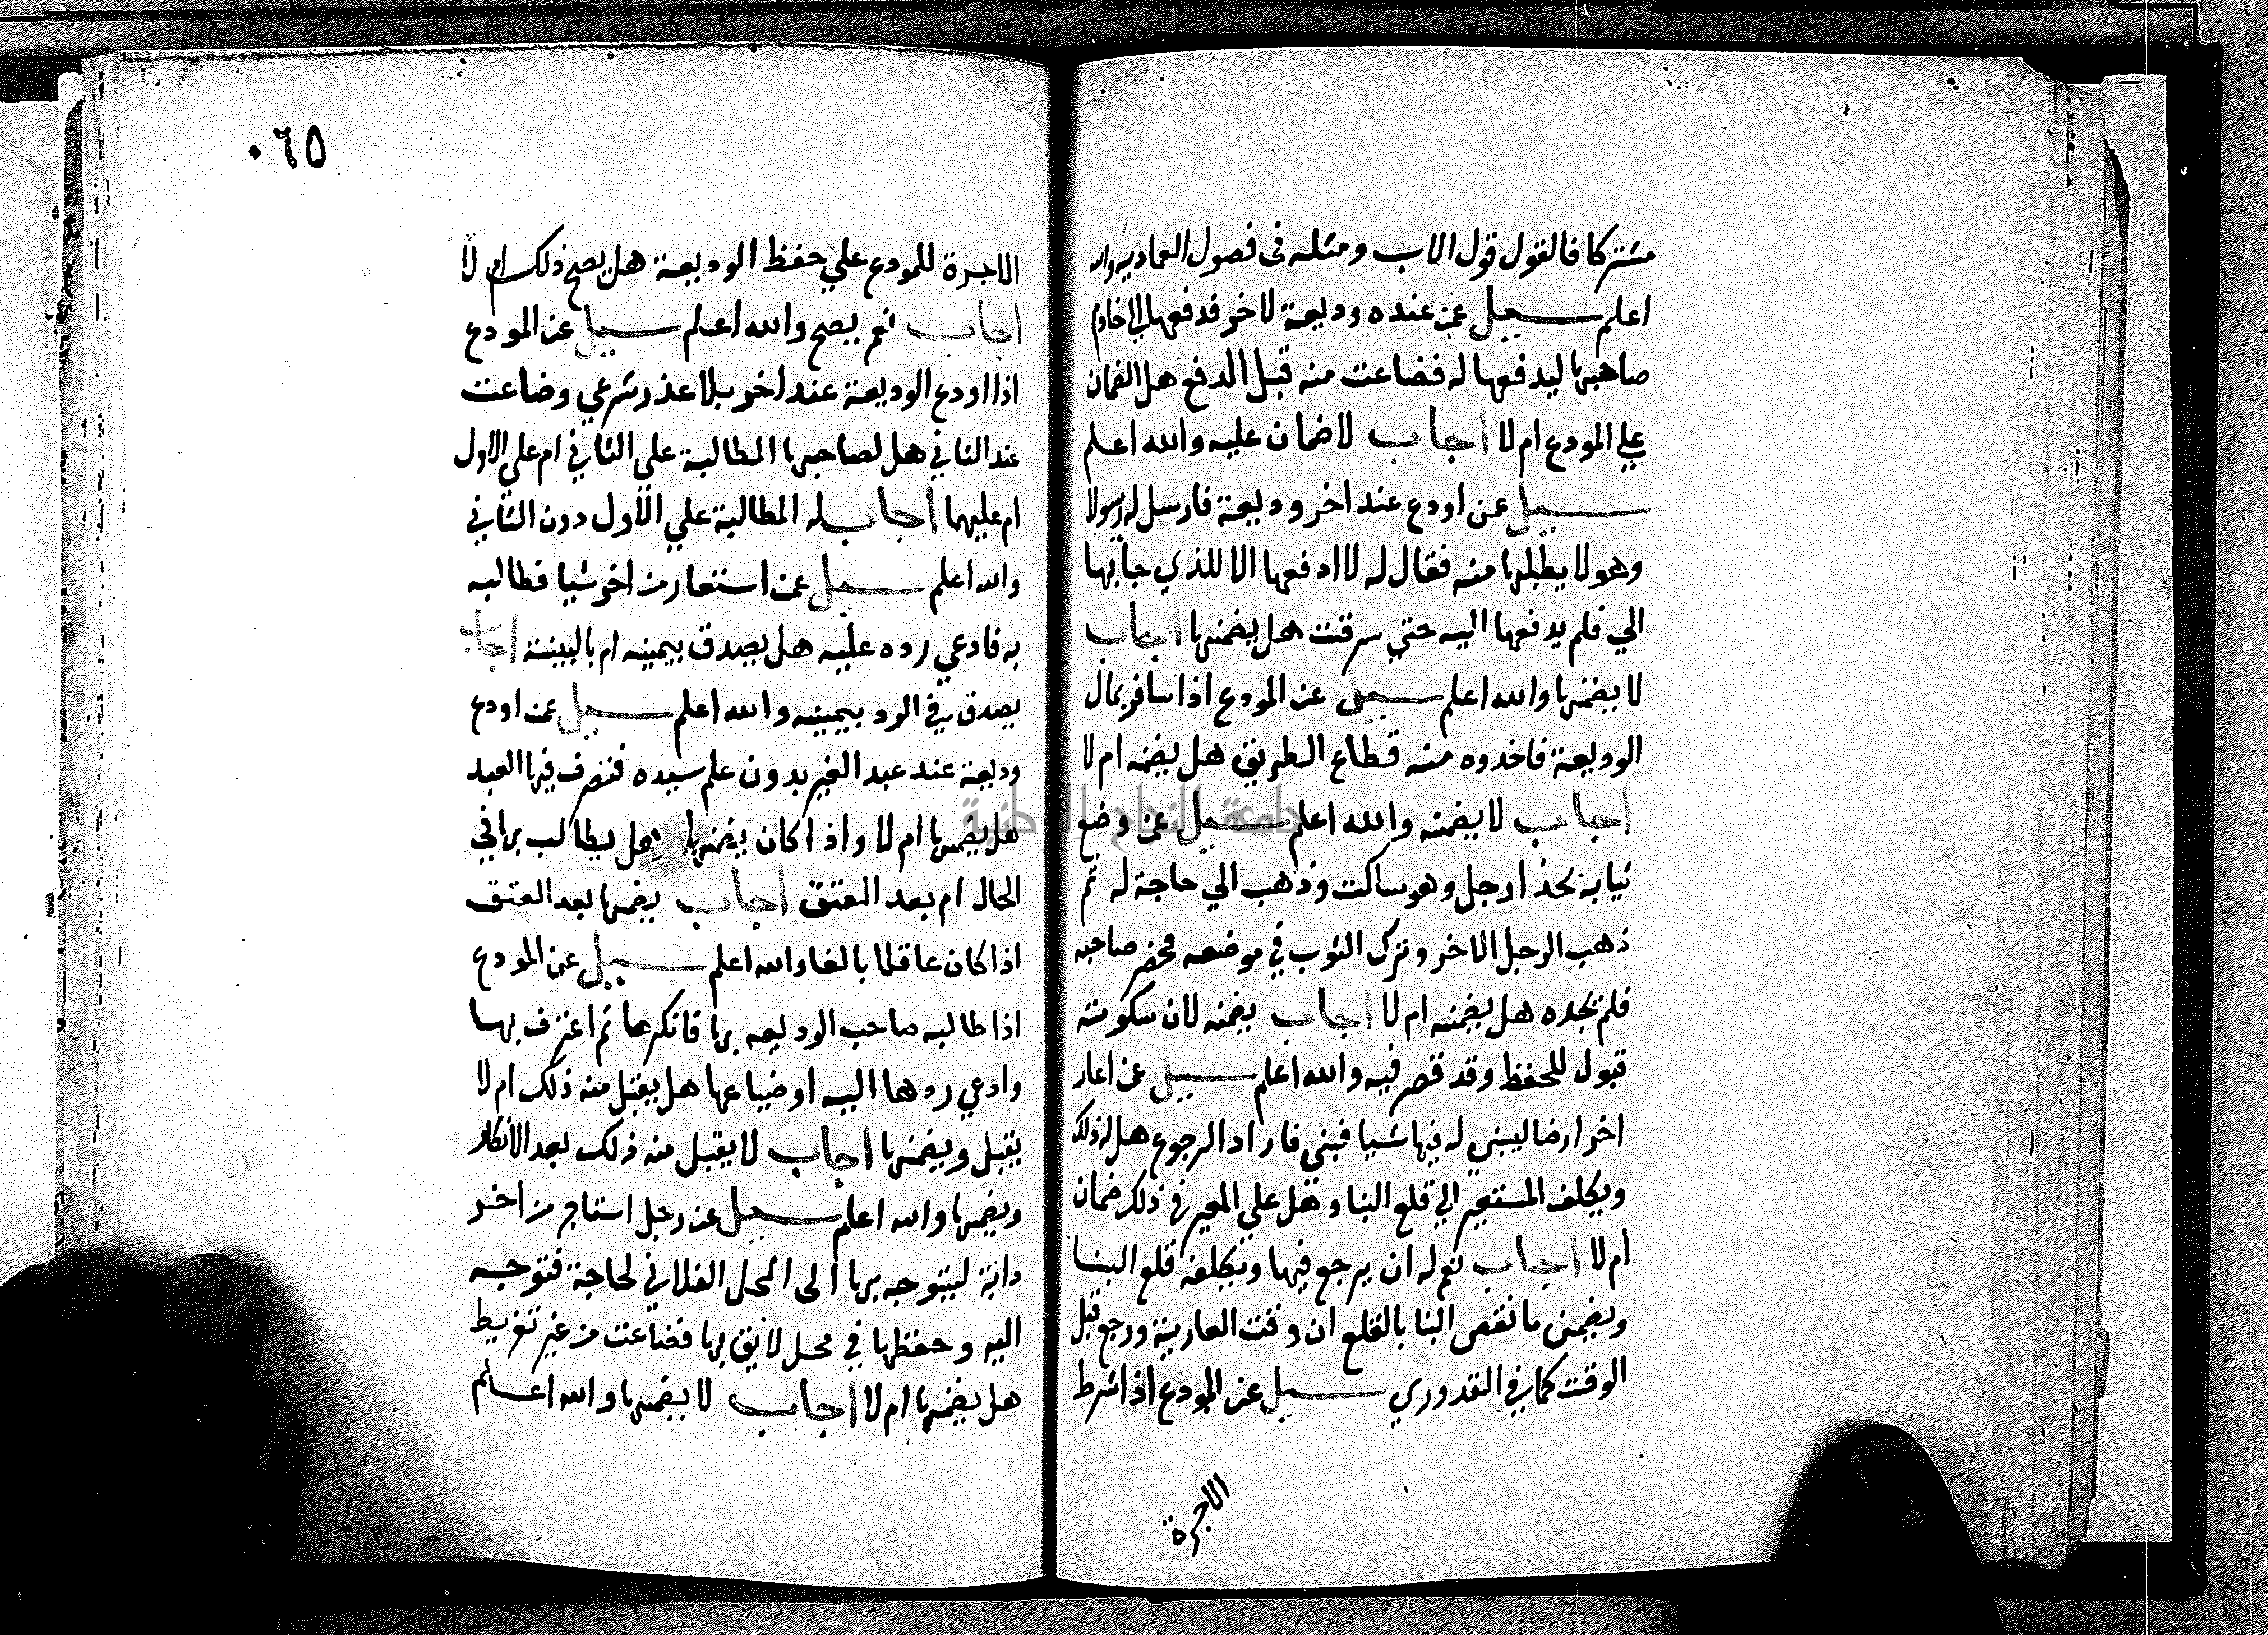 مشتركا فالقول قول الاب ومثله في فصول العماديه والله
اعلم سيل عن عنده وديعة لاخر فدفعها الى خادم
صاحبها ليدفعها له فضاعت منه قبل الدفع هل الضمان
علي المودع ام لا اجاب لا ضمان عليه والله اعلم
سيل عن اودع عند اخر وديعة فارسل له رسولا
وهو لا يطلبها منه فقال له لا ادفعها الا للذي جا بها
الي فلم يدفعها اليه حتي سرقت هل يضمنها اجاب
لا يضمنها والله اعلم سيل عن المودع اذا سافر بمال
الوديعة فاخدوه منه قطاع الطريق هل يضمنه ام لا
اجاب لا يضمنه والله اعلم سيل عن وضع
ثيابه بحذا رجل وهو ساكت وذهب الي حاجة له ثم
ذهب الرجل الاخر وترك الثوب في موضعه فحضر صاحبه
فلم يجده هل يضمنه ام لا اجاب يضمنه لان سكوته
قبول للحفظ وقد قصر فيه والله اعلم سيل عن اعار
اخر ارضا ليبني له فيها شيا فبني فاراد الرجوع هل له ذلك
ويكلف المستعير الي قلع البنا وهل علي المعير في ذلك ضمان
ام لا اجاب نعم له ان يرجع فيها ويكلفه قلع البنا
ويضمن ما نقص البنا بالقلع ان وقت العارية ورجع قبل
الوقت كما في القدوري سيل عن المودع اذا شرط
الاجرة
٠٦٥
الاجرة للمودع علي حفظ الوديعة هل يصح ذلك ام لا
اجاب نعم يصح والله اعلم سيل عن المودع
اذا اودع الوديعة عند اخر بلا عذر شرعي وضاعت
عند الثاني هل لصاحبها المطالبة علي الثاني ام علي الاول
ام عليهما اجاب له المطالبة علي الاول دون الثاني
والله اعلم سيل عن استعار من اخر شيا فطالبه
به فادعي رده عليه هل يصدق بيمينه ام بالبينة اجاب
يصدق في الرد بيمينه والله اعلم سيل عن اودع
وديعة عند عبد الغير بدون علم سيده فتصرف فيها العبد
هل يضمنها ام لا واذا كان يضمنها هل يطالب بها في
الحال ام بعد العتق اجاب يضمنها بعد العتق
اذا كان عاقلا بالغا والله اعلم سيل عن المودع
اذا طالبه صاحب الوديعه بها فانكرها ثم اعترف بها
وادعي ردها اليه او ضياعها هل يقبل منه ذلك ام لا
يقبل ويضمنها اجاب لا يقبل منه ذلك بعد الانكار
ويضمنها والله اعلم سيل عن رجل استاجر من اخر
دابة ليتوجه بها الى المحل الفلاني لحاجة فتوجه
اليه وحفظها في محل لائق بها فضاعت من غير تفريط
هل يضمنها ام لا اجاب لا يضمنها والله اعلم